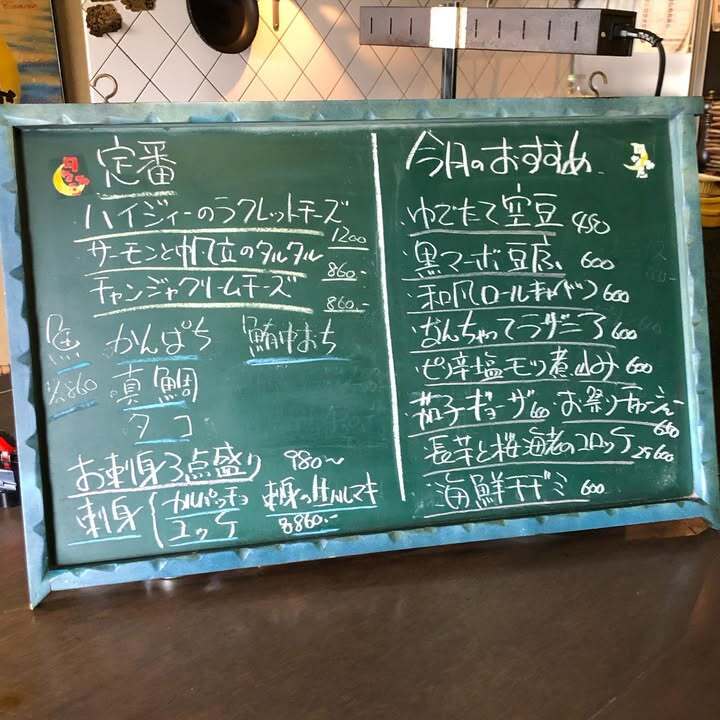 定番
ハイジィーのラクレットチーズ
1200
サーモンと帆立のタルタル
860-
チャンジャクリームチーズ
860-
魚 かんぱち 鮪中おち
860 真鯛
タコ
お刺身3点盛り 980〜
刺身 カルパッチョ 刺身の生ハルマキ
ユッケ 860-
今日のおすすめ
ゆでたて空豆 480
黒マーボ豆腐 600
和風ロールキャベツ 600
なんちゃってラザニア 600
ピリ辛塩モツ煮込み 600
茄子ギョーザ 600 お祭りチャーシュー
600
長芋と桜海老のコロッケ 2コ600
海鮮チヂミ 600